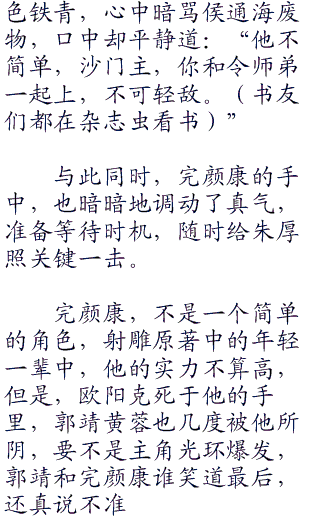 色铁青，心中暗骂侯通海废
物，口中却平静道：“他不
简单，沙门主，你和令师弟
一起上，不可轻敌。（书友
们都在杂志虫看书）”
与此同时，完颜康的手
中，也暗暗地调动了真气，
准备等待时机，随时给朱厚
照关键一击。
完颜康，不是一个简单
的角色，射雕原著中的年轻
一辈中，他的实力不算高，
但是，欧阳克死于他的手
里，郭靖黄蓉也几度被他所
阴，要不是主角光环爆发，
郭靖和完颜康谁笑道最后，
还真说不准